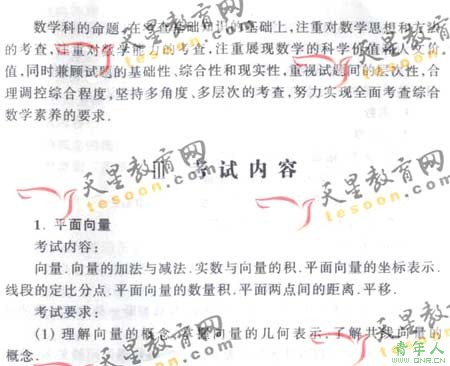 数学科的命题,在考查基础知识的基础上,注重对数学思想和方法
的考查,注重对数学能力的考查,注重展现数学的科学价值和人文价
值,同时兼顾试题的基础性、综合性和现实性,重视试题间的层次性,合
理调控综合程度,坚持多角度、多层次的考查,努力实现全面考查综合
数学素养的要求.
考试内容
1. 平面向量
考试内容:
向量.向量的加法与减法.实数与向量的积.平面向量的坐标表示.
线段的定比分点.平面向量的数量积.平面两点间的距离.平移.
考试要求:
(1) 理解向量的概念,掌握向量的几何表示,了解共线向量的
概念.
天星教育网
tesoon.com
天星教育网
tesoon.com
天星教育网
tesoon.com
天星教育网
tesoon.com
青年人
www.QNR.CN